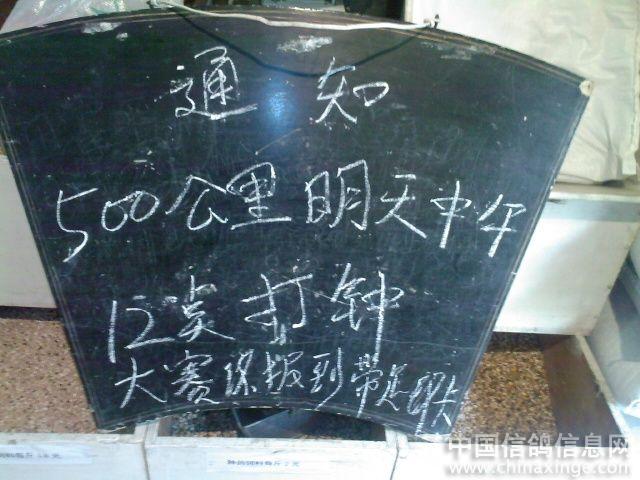 通知
500公里明天中午
12点打钟
大赛 报到带足
中国信鸽信息网
www.chinaxinge.com